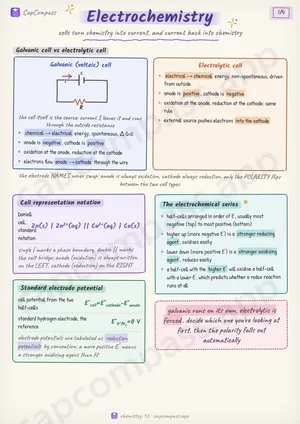 CapCompass
Electrochemistry
1A
cells turn chemistry into current, and current back into chemistry
Galvanic cell vs electrolytic cell
Galvanic (voltaic) cell
I
E
R
the cell itself is the source: current I leaves it and runs
through the outside resistance
• chemical → electrical energy, spontaneous, ΔG<0
• anode is negative, cathode is positive
• oxidation at the anode, reduction at the cathode
• electrons flow anode → cathode through the wire
Electrolytic cell
• electrical → chemical energy, non-spontaneous, driven
from outside
• anode is positive, cathode is negative
• oxidation at the anode, reduction at the cathode: same
rule
• external source pushes electrons into the cathode
the electrode NAMES never swap: anode is always oxidation, cathode always reduction, only the POLARITY flips
between the two cell types
Cell representation notation
Daniell
cell,
standard
notation
Zn(s) | Zn²⁺(aq) || Cu²⁺(aq) | Cu(s)
single | marks a phase boundary, double || marks
the salt bridge; anode (oxidation) is always written
on the LEFT, cathode (reduction) on the RIGHT
The electrochemical series
• half-cells arranged in order of E°, usually most
negative (top) to most positive (bottom)
• higher up (more negative E°) is a stronger reducing
agent, oxidises easily
• lower down (more positive E°) is a stronger oxidising
agent, reduces easily
• a half-cell with the higher E° will oxidise a half-cell
with a lower E°, which predicts whether a redox reaction
runs at all
Standard electrode potential
cell potential from the two
half-cells
E°cell=E°cathode-E°anode
standard hydrogen electrode, the
reference
E°H⁺/H₂=0 V
electrode potentials are tabulated as reduction
potentials by convention; a more positive E° means
a stronger oxidising agent than H⁺
galvanic runs on its own, electrolytic is
forced. decide which one you're looking at
first, then the polarity falls out
automatically
chemistry 12 · capcompass.app